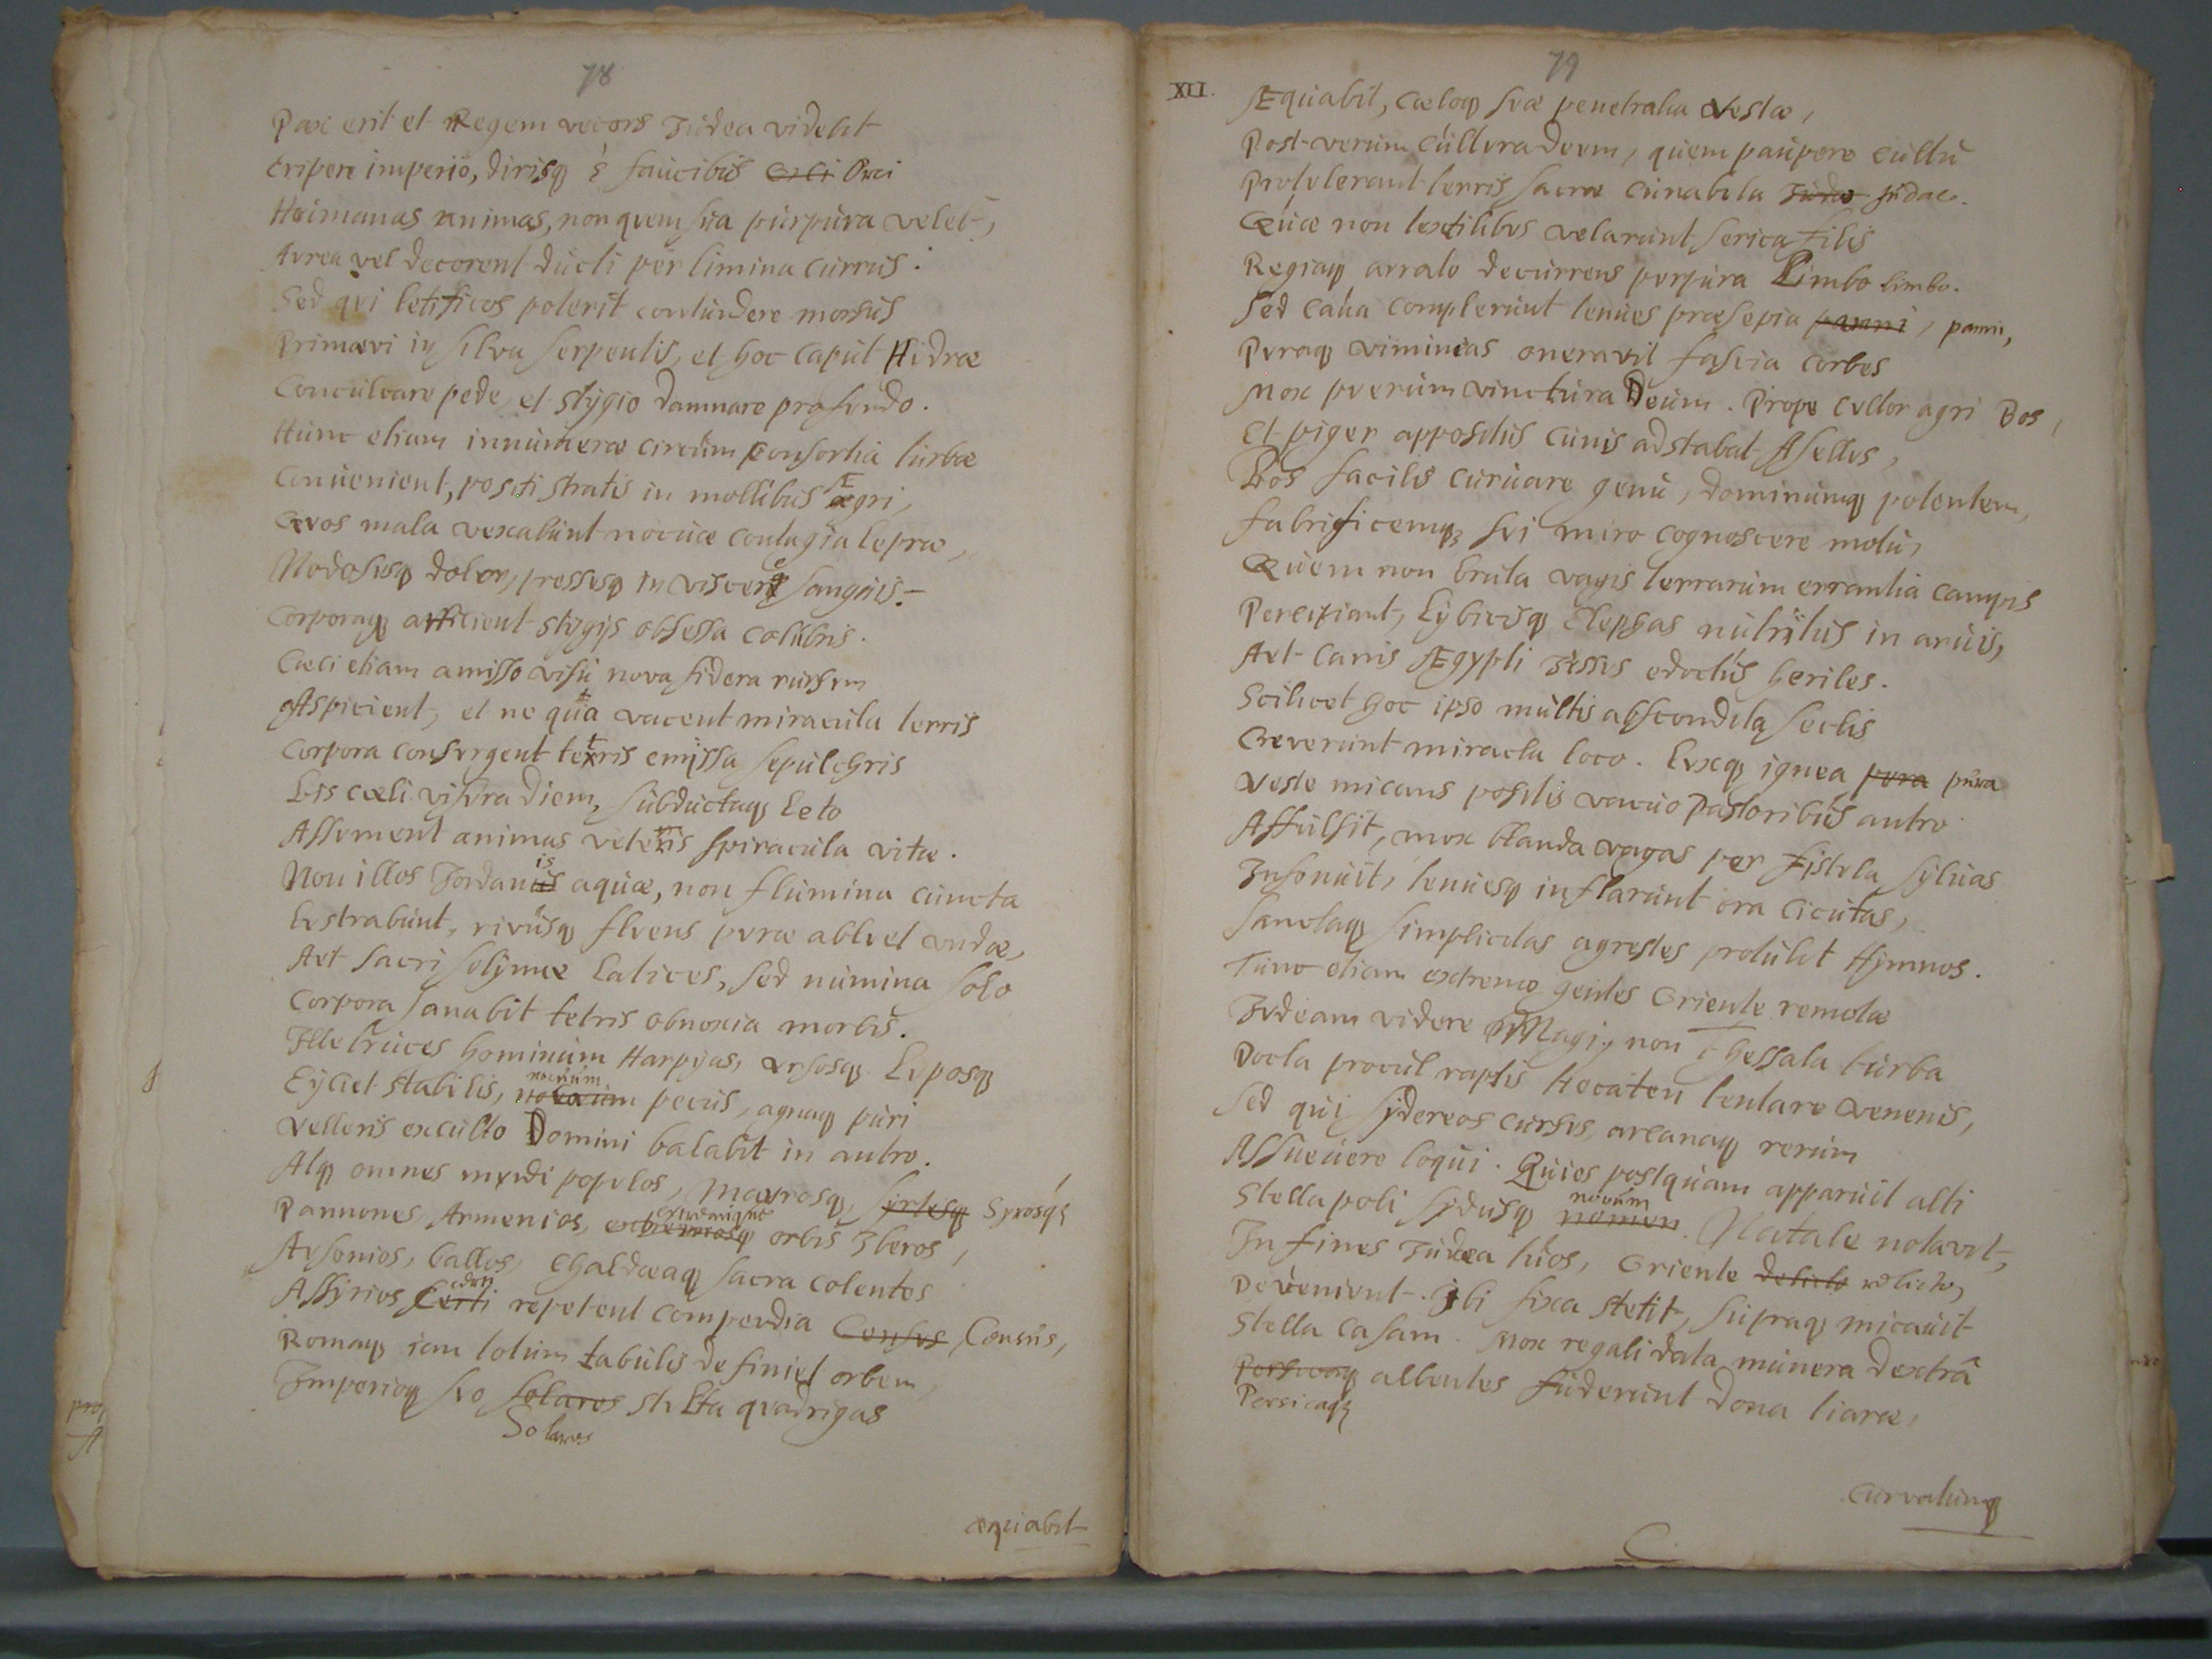 78
Pax erit et Regem vecors Iudea videbit
Eripere imperio, dirisq; è faucibus Orci Orci
Humanas animas, non quem sua purpura velet,
Aurea vel decorent ducti per limina currus.
Sed qui letificos poterit contundere morsus
Primævi in silva serpentis, et hoc caput Hidræ
Conculcare pede, et stygio damnare profundo.
Hunc etiam innumeræ circum consortia turbæ
Convenient, positi stratis in mollibus Ægri,
Quos mala vexabunt nocuæ contagia lepræ,
Nodosusq; dolor, pressusq; in viscere sanguis.
Corporaq; afficient stygijs obsessa colubris.
Cæci etiam amisso visu nova sidera rursum
Aspicient, et ne qua vacent miracula terris
Corpora consurgent tetris emissa sepulchris
Bis cæli visura diem, subductaq; Leto
Assument animas veteris spiracula vitæ.
Non illos Iordanis aquæ, non flumina cuncta
Lustrabunt, rivusq; fluens puræ abluet undæ,
Aut sacri solymæ Latices, sed numina solo
Corpora sanabit tetris obnoxia morbis.
Ille truces hominum Harpyas, ursosq; Luposq;
Eijciet stabilis, nocuum
pecus, agnaq; puri
Velleris exculto Domini balabit in antro.
Atq; omnes mundi populos, Maurosq; syrtesq; Syrosq;
Pannones, Armenios, extremosq; orbis Iberos,
Ausonios, Gallos, Chaldæaq; sacra colentes
Assyrios
repetent compendia Census Census,
Romaq; iam totum tabulis definiet orbem,
Imperioq; suo solares stulta quadrigas
Solares
æquabit
79
XII.
Æquabit, cæloq; suæ penetralia Vestæ,
Post verum cultura Deum, quem paupere cultu
Protulerant terris sacræ cunabula Iudæ Iudæ.
Quæ non textilibus velarunt serica filis
Regiaq; arrato decurrens purpura Limbo limbo.
Sed cava complerunt tenues præsepia panni, panni,
Puraq; vimineas oneravit fascia corbes
Mox puerum vinctura Deum. Prope cultor agri Bos,
Et piger appositus cunis adstabat Asellus,
Bos facilis curuare genu, dominumq; potentem,
Fabrificemq; sui miro cognoscere motu,
Quem non bruta vagis terrarum errantia campis
Percipiant, Lybicisq; Elephas nutritus in aruis,
Aut canis Ægypti Iussus edoctus heriles.
Scilicet hoc ipso multis abscondita seclis
Creverunt miracla loco. Luxq; ignea pura pura
Veste micans positis vacuo Pastoribus antro
Affulsit, mox blanda vagas per fistula syluas
Insonuit, tenuesq; inflarunt ora cicutas,
Sanctaq; simplicitas agrestes protulit Hymnos.
Tunc etiam extremæ gentes Oriente remotæ
Iudeam videre Magi, non Thessala turba
Docta procul raptis Hecaten tentare venenis,
Sed qui sydereos cursus, arcanaq; rerum
Assueuere loqui. Queis postquam apparuit alti
Stella poli sydusq; nomen novum Natale notavit,
In fines Iudæa tuos, Oriente delicto relicto,
Devenivnt. Ibi fixa stetit, supraq; micavit
Stella casam. Mox regali data munera dextrâ
Persicaq; albentes fuderunt dona tiaræ,
Persicaq;
Curvatumq;